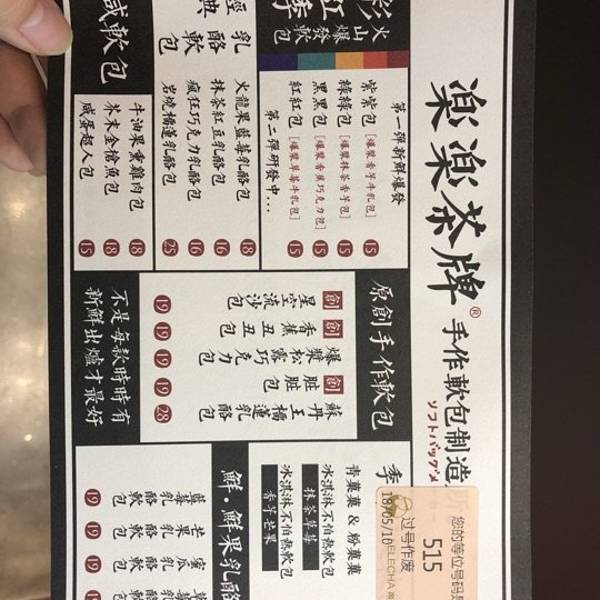 楽楽茶牌® 手作軟包制造
ソフトバッグメ
彩虹季
火山爆發軟包
第一弹新鮮爆發
紫紫包 [爆漿香芋牛乳包] 15
綠綠包 [爆漿抹茶香芋包] 15
黑黑包 [爆漿香蕉巧克力包] 15
紅紅包 15
第二弹研發中...
經典
乳酪軟包
火龍果藍莓乳酪包 18
抹茶紅豆乳酪包 16
瘋狂巧克力乳酪包 16
岩燒榴蓮乳酪包 25
咸軟包
牛油果熏雞肉包 18
芥末金槍魚包 18
咸蛋超人包 15
原創手作軟包
創 星空流沙包 19
創 香蕉丑丑包 19
爆漿松露巧克力包 19
創 脏脏包 19
蘇丹王榴蓮乳酪 28
不是每款時時有
新鮮出爐才最好
季
青菓菓 & 粉菓菓
冰淇淋不怕熱軟包
抹茶草莓
冰淇淋不怕熱軟包
香芋芒果
鮮・鮮果乳酪
藍莓乳酪軟包 19
芒果乳酪軟包 19
蜜瓜乳酪軟 19
草莓乳酪軟 19
您的等位号码是
515
过号作废
18/05/10
ELECHA